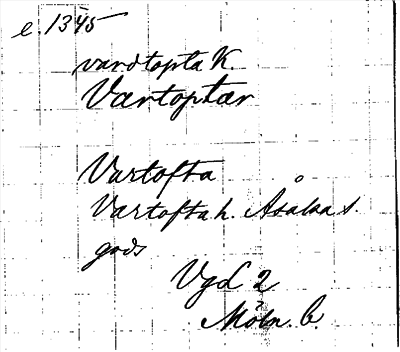 e. 1345
vardtopta K.
Værtoptær
Vartofta
Vartofta h. Åsaka s.
gods
Vgd 2